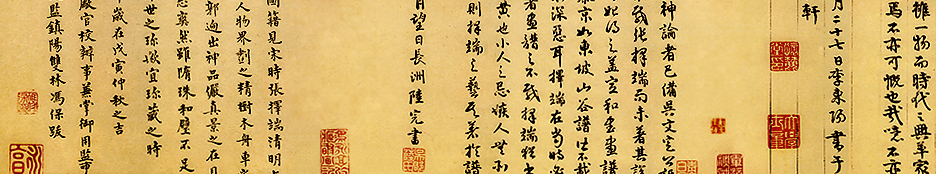 一物而時代之興革家
焉不亦可慨也哉噫不亦
月二十七日李東陽書于
軒
神論者已備吳文定公
張擇端而未著其
之蓋宣和畫譜
京如東坡山谷譜皆不載
深惡耳擇端在當時必
畫譜之不載擇端猶
甚也小人之忌嫉人無不
則擇端之藝其著於譜
月望日長洲陸完書
國籍見宋時張擇端清明上
人物界劃之精樹木舟車
郭迥出神品儼真景之在目
雖隋珠和璧不足
世之珍歟宜珍藏之時
歲在戊寅仲秋之吉
廠官校辦事兼掌御用監事
監鎮陽雙林馮保跋